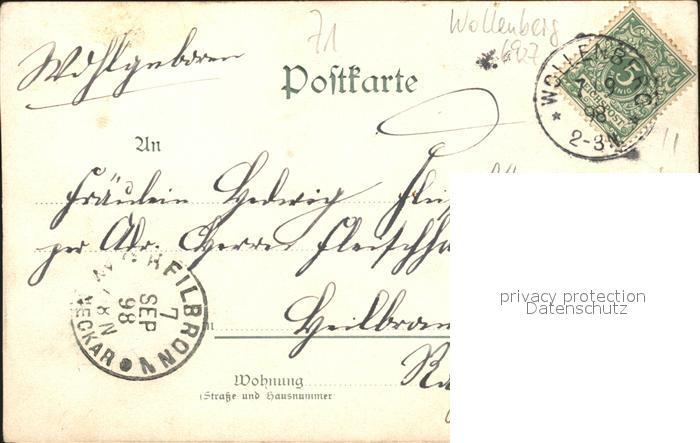 71 Wollenberg
6927
Wohlgeboren
Postkarte
WOLLENB
7 9
98
2-3N.
5
REICHSPOST
An
Fräulein Hedwig
per Adr. Herrn
HEILBRONN
7
SEP
98
NECKAR
Heilbronn
Wohnung
(Straße und Hausnummer
privacy protection
Datenschutz